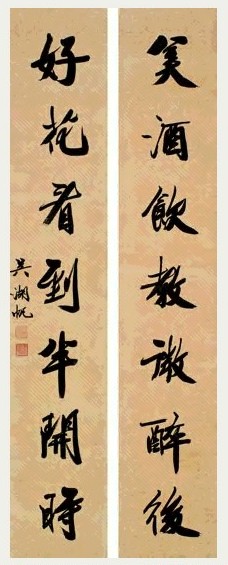 美酒飲教微醉後
好花看到半開時
吳湖帆